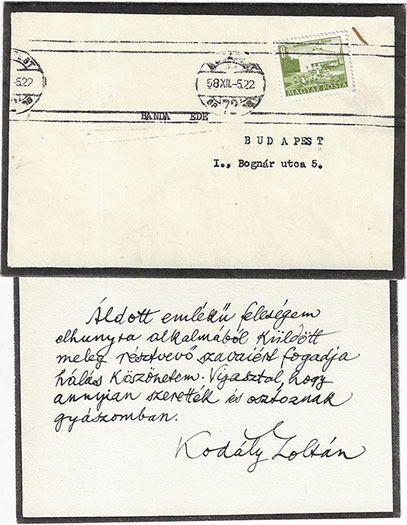 BUDAPEST
58 XII.-5.22
72
MAGYAR POSTA
BANDA EDE
BUDAPEST
I., Bognár utca 5.
Áldott emlékű feleségem
elhunyta alkalmából küldött
meleg résztvevő szavaiért fogadja
hálás köszönetem. Vigasztal, hogy
annyian szerették és osztoznak
gyászomban.
Kodály Zoltán